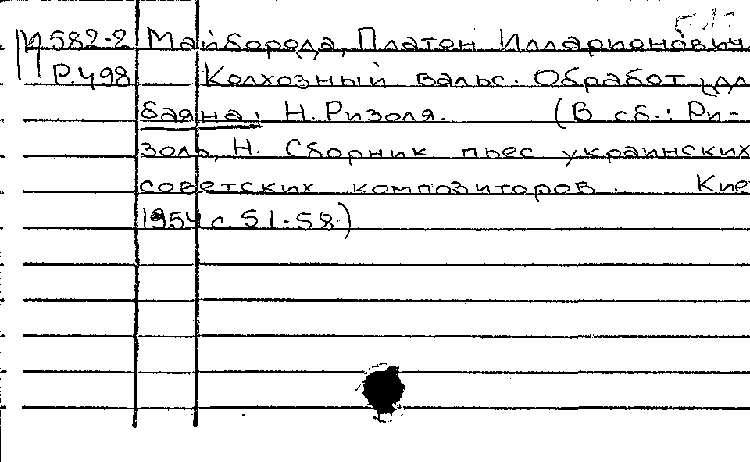 И582-2 Майборода, Платон Илларионович
Р.498 Колхозный вальс. Обработ. дл
баяна: Н. Ризоля. (В сб.: Ри-
золь, Н. Сборник пьес украинских
советских композиторов. Кие
1954 с. 51-58.)